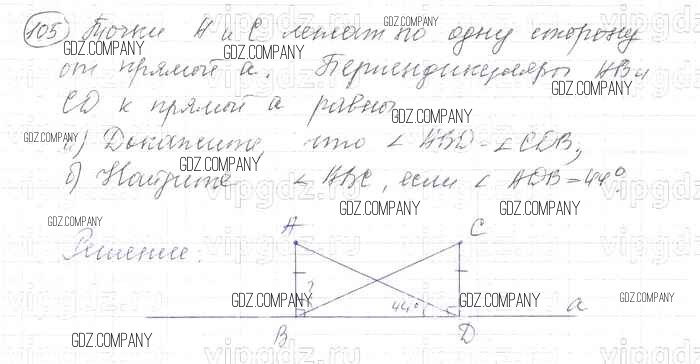 105) Точки А и С лежат по одну сторону
от прямой а. Перпендикуляры АВ и
CD к прямой а равны.
а) Докажите, что ∠ ABD = ∠ CDB;
б) Найдите ∠ ABC, если ∠ ADB = 44°.
Решение:
A
C
?
44°
a
B
D
GDZ.COMPANY
GDZ.COMPANY
GDZ.COMPANY
GDZ.COMPANY
GDZ.COMPANY
GDZ.COMPANY
GDZ.COMPANY
GDZ.COMPANY
GDZ.COMPANY
GDZ.COMPANY
GDZ.COMPANY
GDZ.COMPANY
GDZ.COMPANY
GDZ.COMPANY